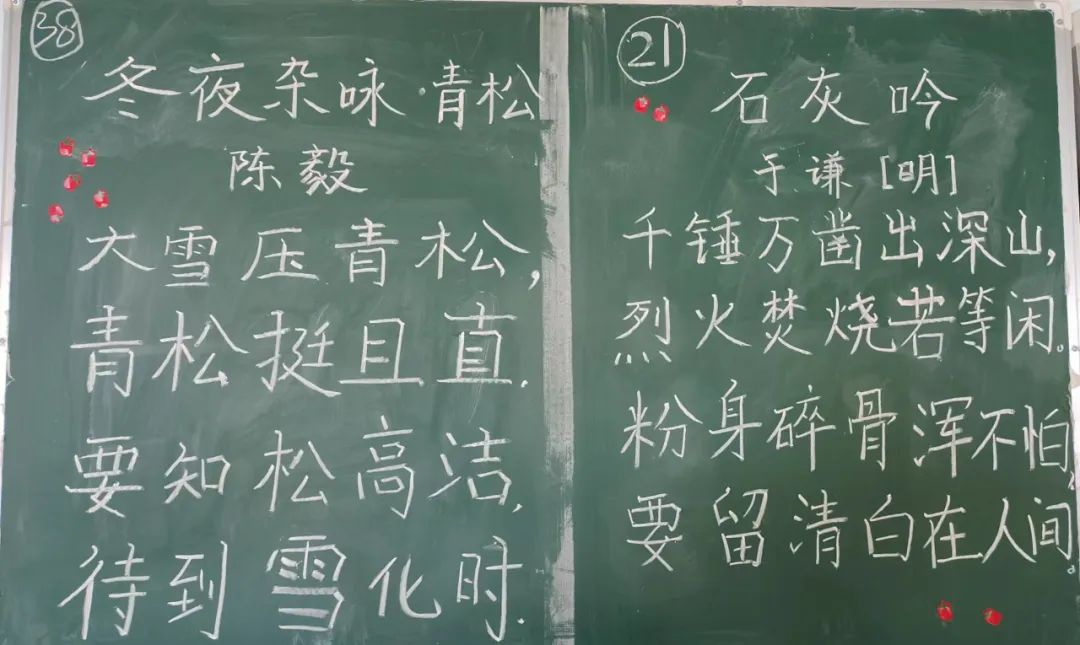 38
冬夜杂咏·青松
陈毅
大雪压青松,
青松挺且直.
要知松高洁,
待到雪化时.
21
石灰吟
于谦[明]
千锤万凿出深山,
烈火焚烧若等闲。
粉身碎骨浑不怕,
要留清白在人间.